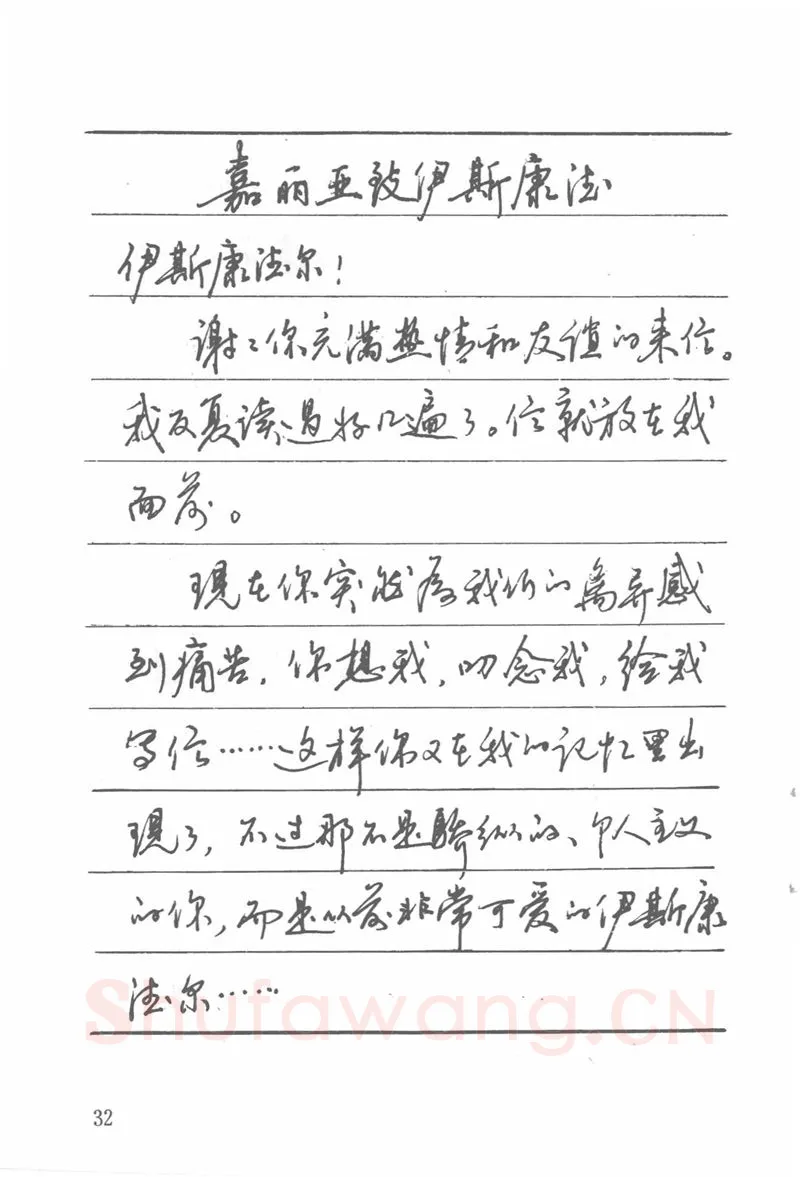 嘉丽亚致伊斯康法
伊斯康法尔！
谢谢你充满热情和友谊的来信。
我反复读过好几遍了。信就放在我
面前。
现在你突然为我们的离异感
到痛苦，你想我，叨念我，给我
写信……这样你又在我的记忆里出
现了，不过那不是骄纵的、个人主义
的你，而是以前非常可爱的伊斯康
法尔……
Shufawang.CN
32